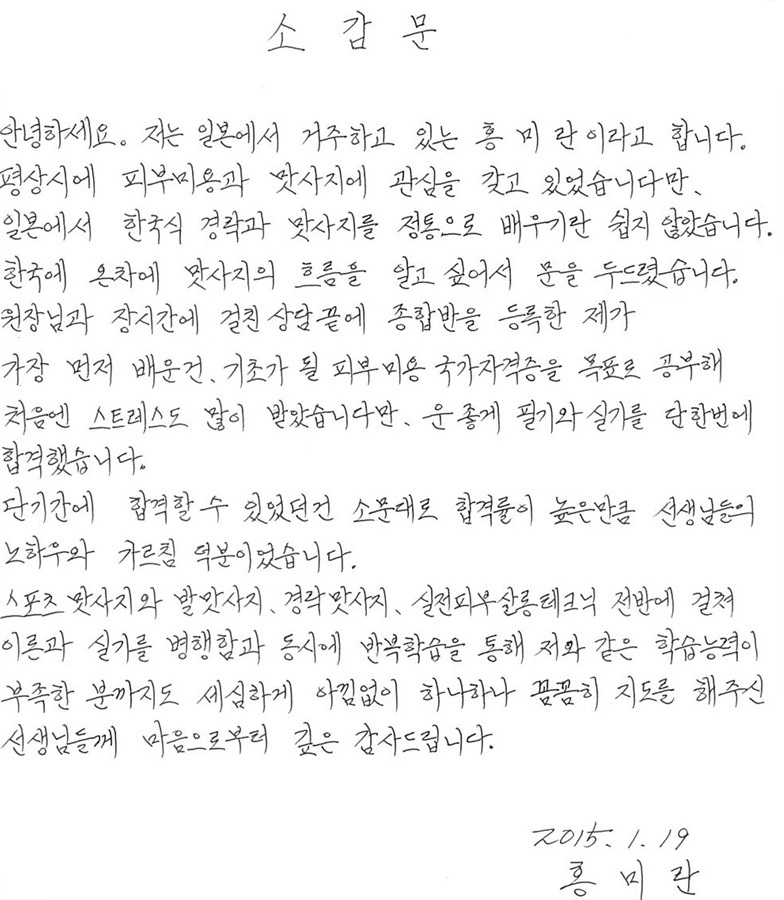 소 감 문
안녕하세요. 저는 일본에서 거주하고 있는 홍 미 란이라고 합니다.
평상시에 피부미용과 맛사지에 관심을 갖고 있었습니다만,
일본에서 한국식 경락과 맛사지를 정통으로 배우기란 쉽지 않았습니다.
한국에 온차에 맛사지의 흐름을 알고 싶어서 문을 두드렸습니다.
원장님과 장시간에 걸친 상담끝에 종합반을 등록한 제가
가장 먼저 배운건, 기초가 될 피부미용 국가자격증을 목표로 공부해
처음엔 스트레스도 많이 받았습니다만, 운좋게 필기와 실기를 단한번에
합격했습니다.
단기간에 합격할 수 있었던건 소문대로 합격률이 높은만큼 선생님들의
노하우와 가르침 덕분이었습니다.
스포츠 맛사지와 발맛사지, 경락맛사지, 실전피부살롱테크닉 전반에 걸쳐
이론과 실기를 병행함과 동시에 반복학습을 통해 저와 같은 학습능력이
부족한 분까지도 세심하게 아낌없이 하나하나 꼼꼼히 지도를 해주신
선생님들께 마음으로부터 깊은 감사드립니다.
2015. 1. 19
홍 미 란